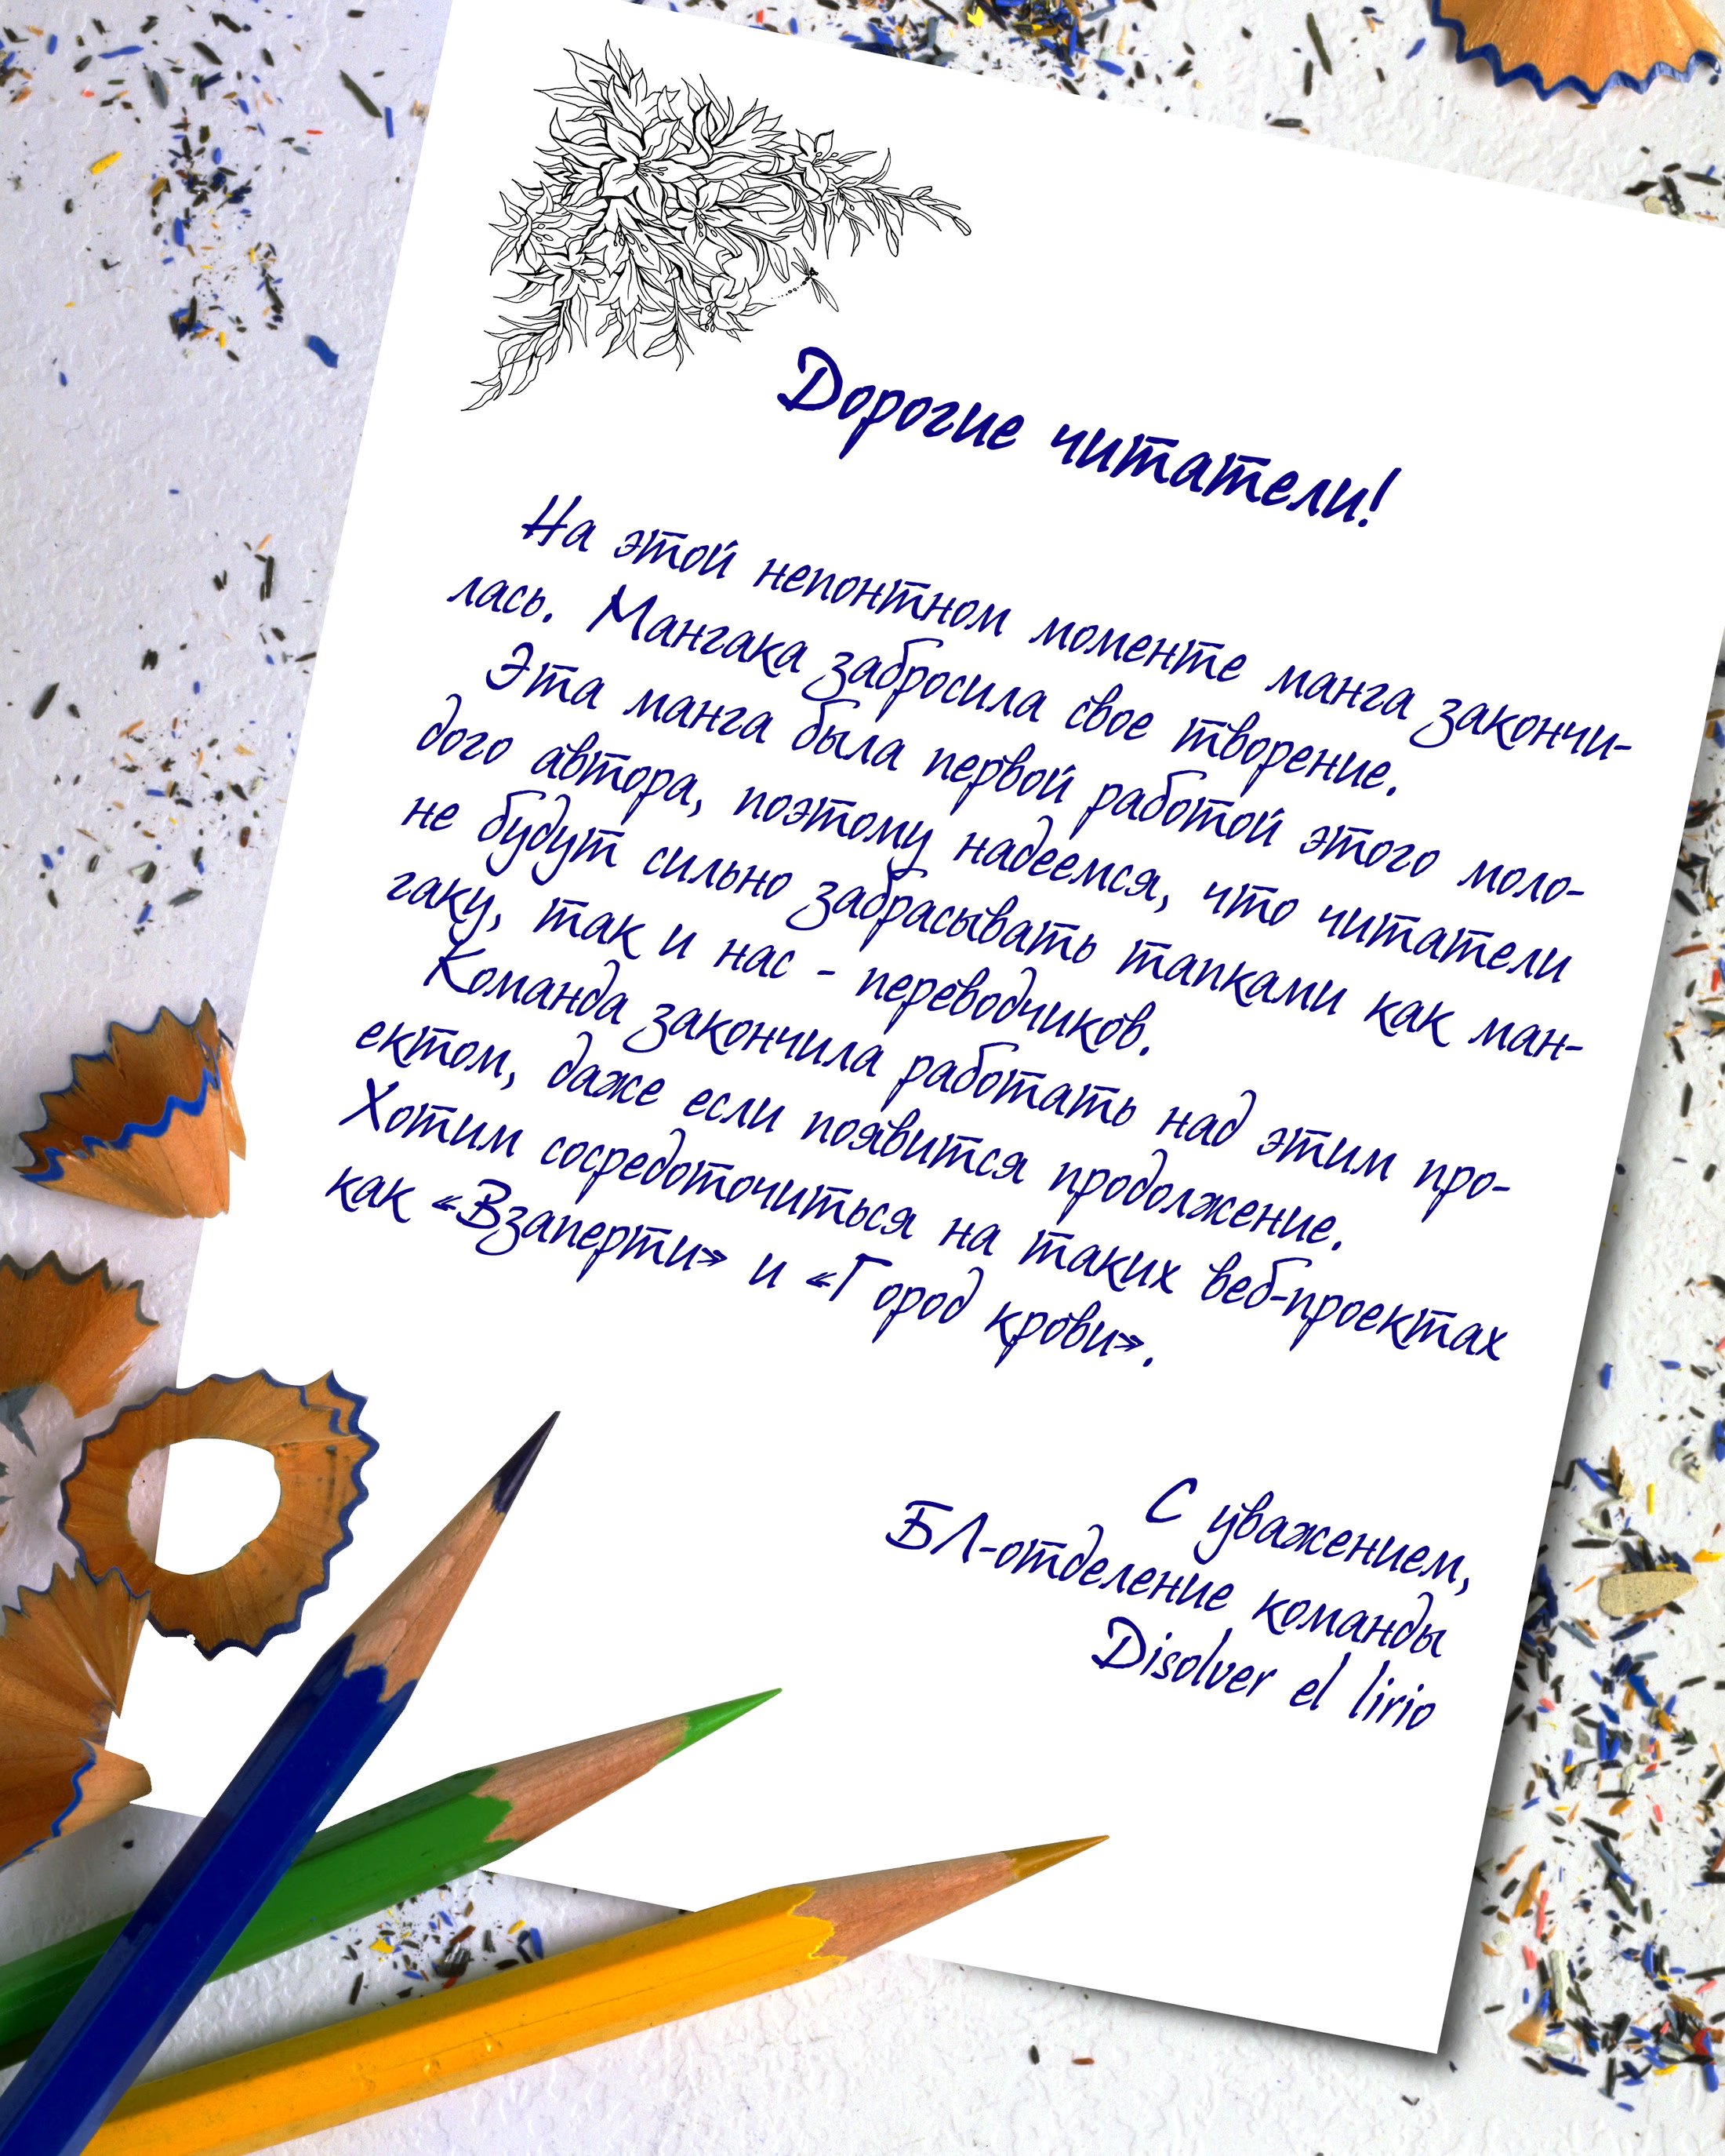 Дорогие читатели!
На этой непонтном моменте манга закончи-
лась. Мангака забросила свое творение.
Эта манга была первой работой этого моло-
дого автора, поэтому надеемся, что читатели
не будут сильно забрасывать тапками как ман-
гаку, так и нас - переводчиков.
Команда закончила работать над этим про-
ектом, даже если появится продолжение.
Хотим сосредоточиться на таких веб-проектах
как «Взаперти» и «Город крови».
С уважением,
БЛ-отделение команды
Disolver el lirio